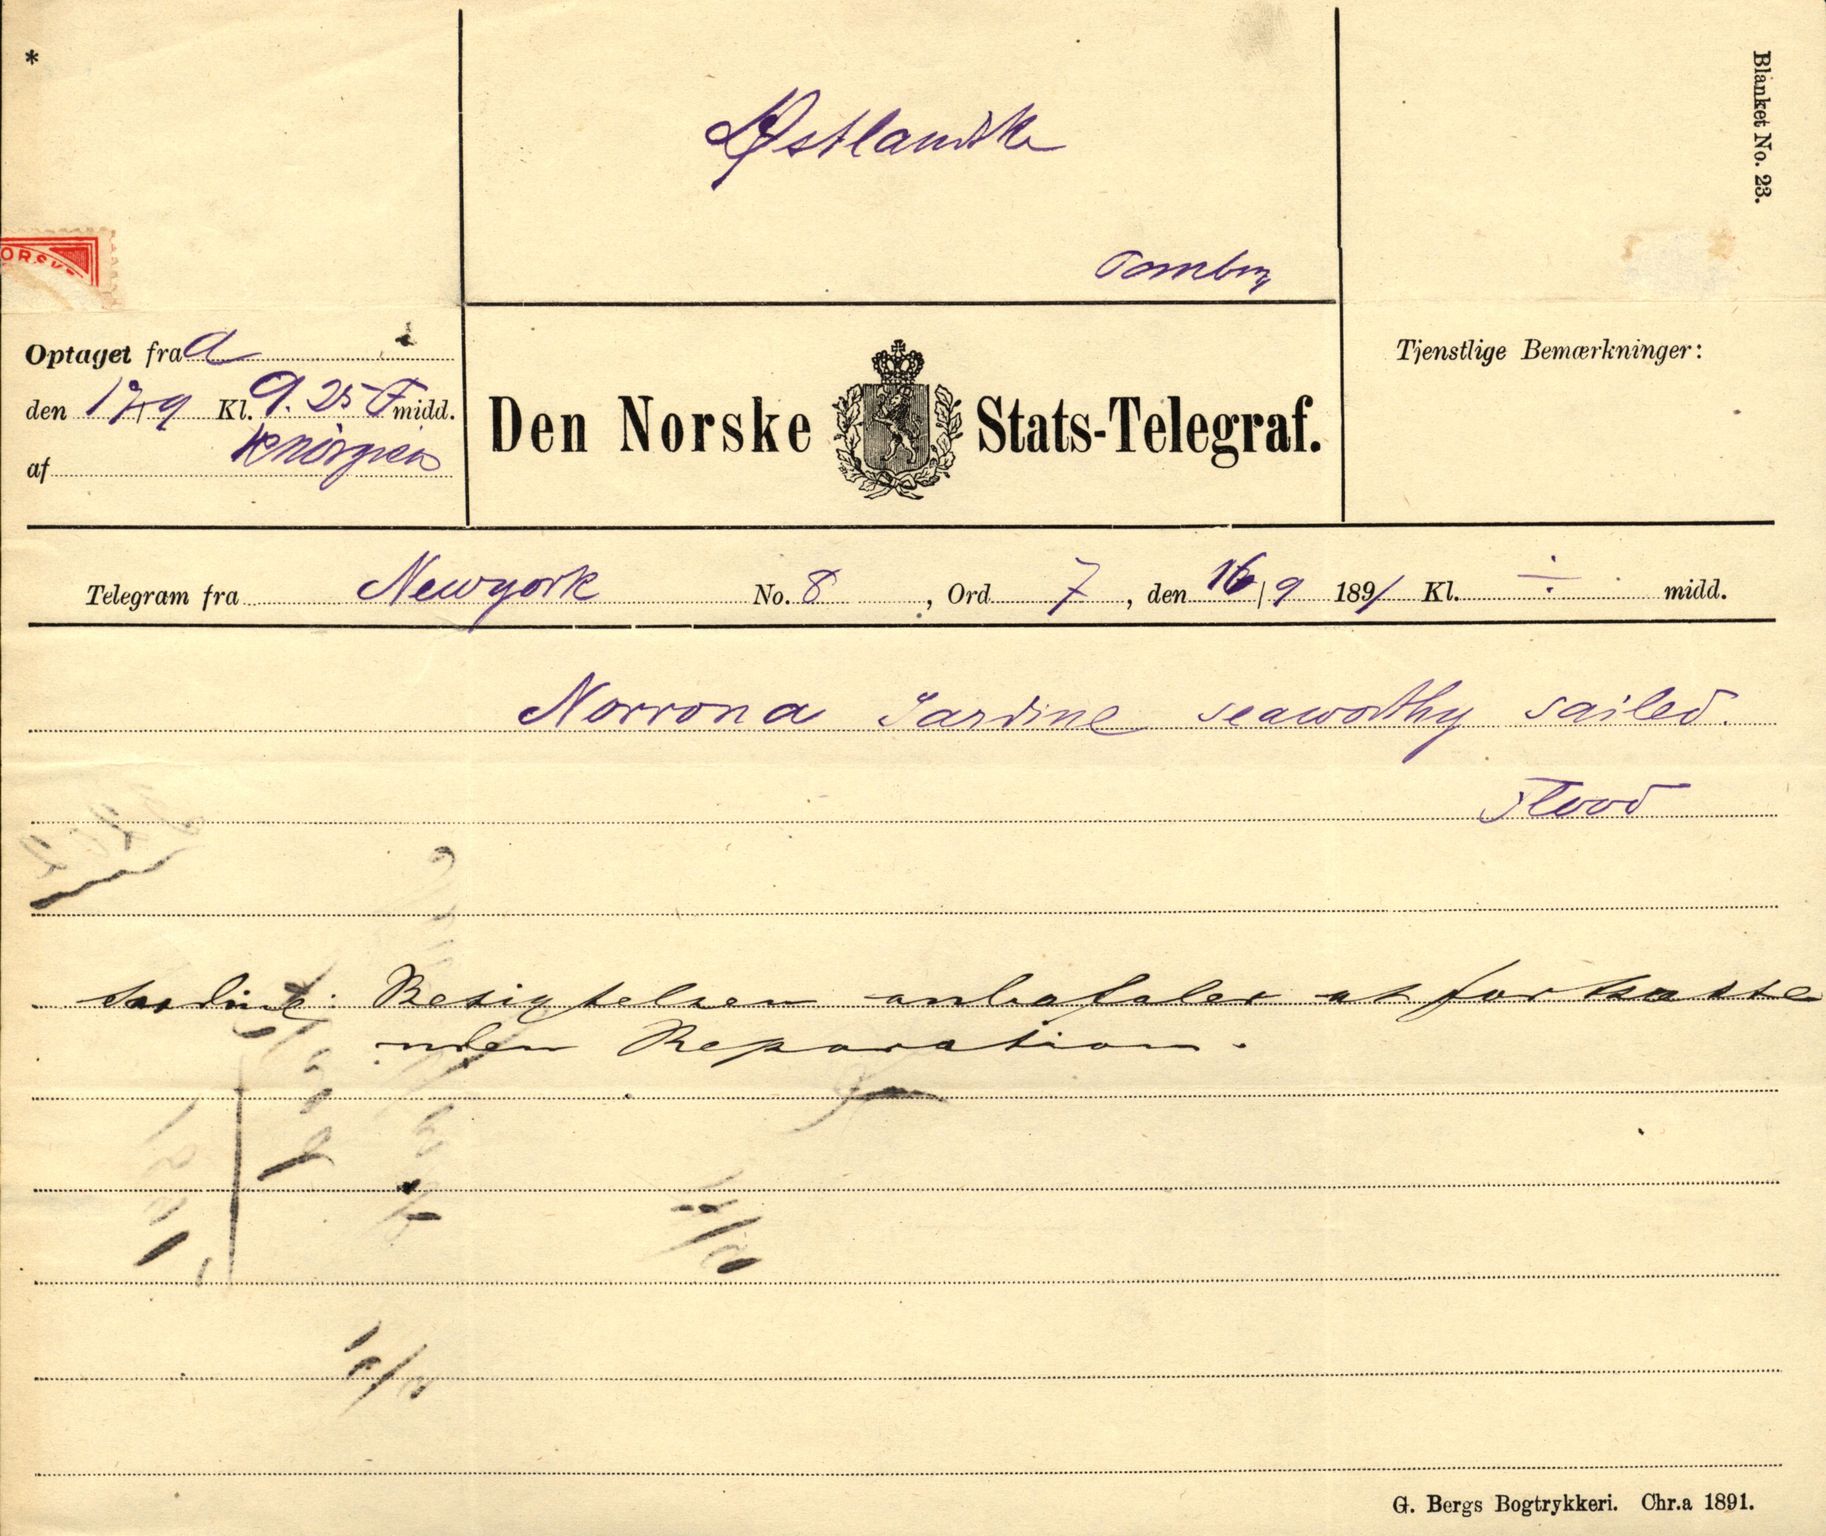 *
Blanket No. 23.
Østlandske
ORSKE
Optaget fra a
den 17/9 Kl. 9.25 F midd.
af
Den Norske Stats-Telegraf.
Tjenstlige Bemærkninger:
Telegram fra Newyork No. 8, Ord 7, den 16/9 1891 Kl. ÷ midd.
Norrona Sardine seaworthy sailed.
Flood
Sardine: Besigtelsen anbefaler at fortsætte
uden Reparation.
G. Bergs Bogtrykkeri. Chr.a 1891.